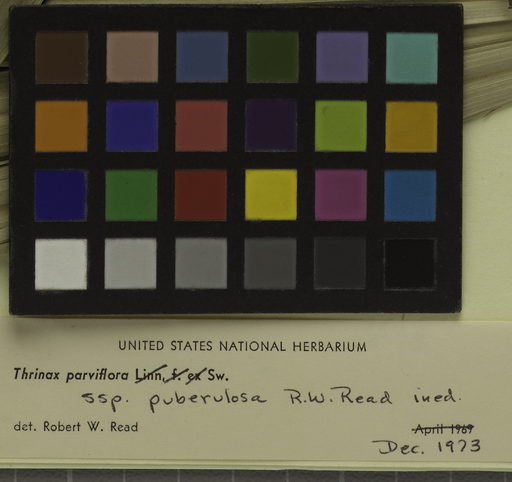 UNITED STATES NATIONAL HERBARIUM
Thrinax parviflora Linn. f. ex Sw.
ssp. puberulosa R.W. Read ined.
det. Robert W. Read April 1969
Dec. 1973